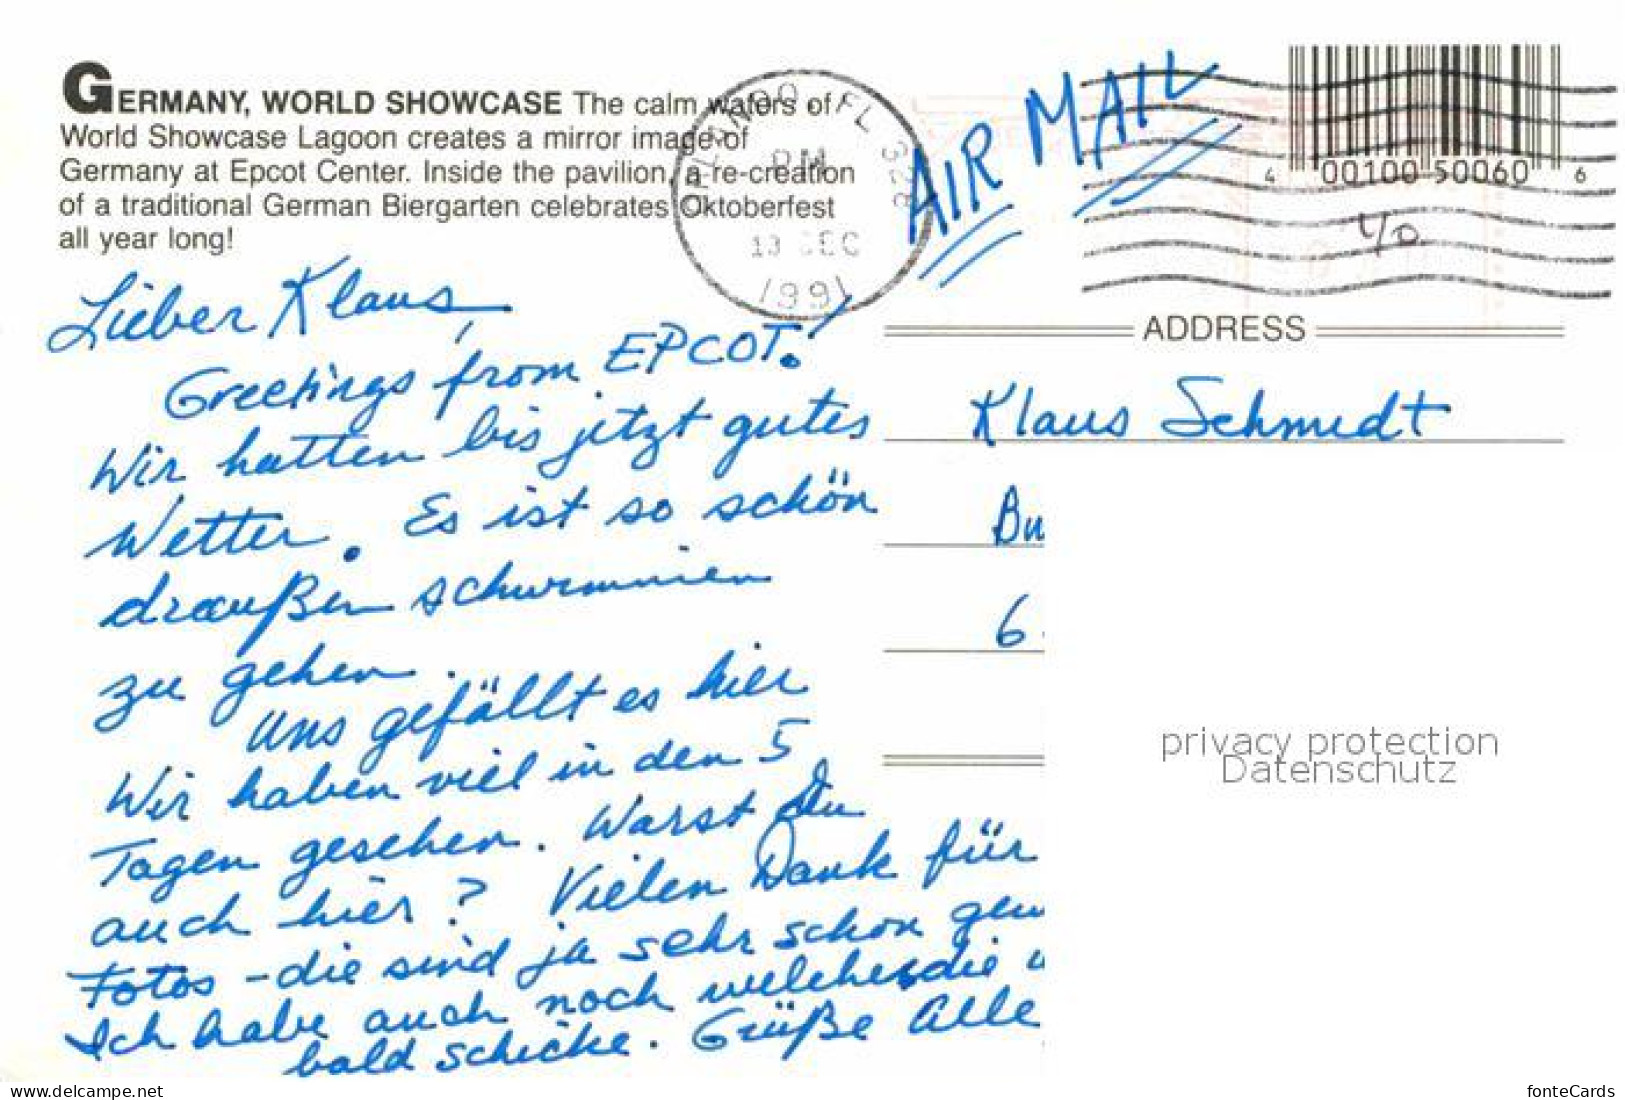 GERMANY, WORLD SHOWCASE The calm waters of
World Showcase Lagoon creates a mirror image of
Germany at Epcot Center. Inside the pavilion, a re-creation
of a traditional German Biergarten celebrates Oktoberfest
all year long!
ORLANDO, FL 328
PM
13 DEC
1991
AIR MAIL
4 00100 50060 6
ADDRESS
Klaus Schmidt
Bu
6
Lieber Klaus,
Greetings from EPCOT!
Wir hatten bis jetzt gutes
Wetter. Es ist so schön
draußen schwimmen
zu gehen.
Uns gefällt es hier
Wir haben viel in den 5
Tagen gesehen. Warst Du
auch hier? Vielen Dank für
Fotos - die sind ja sehr schon gew
Ich habe auch noch welche, die
bald schicke. Grüße Alle
privacy protection
Datenschutz
www.delcampe.net
fonteCards